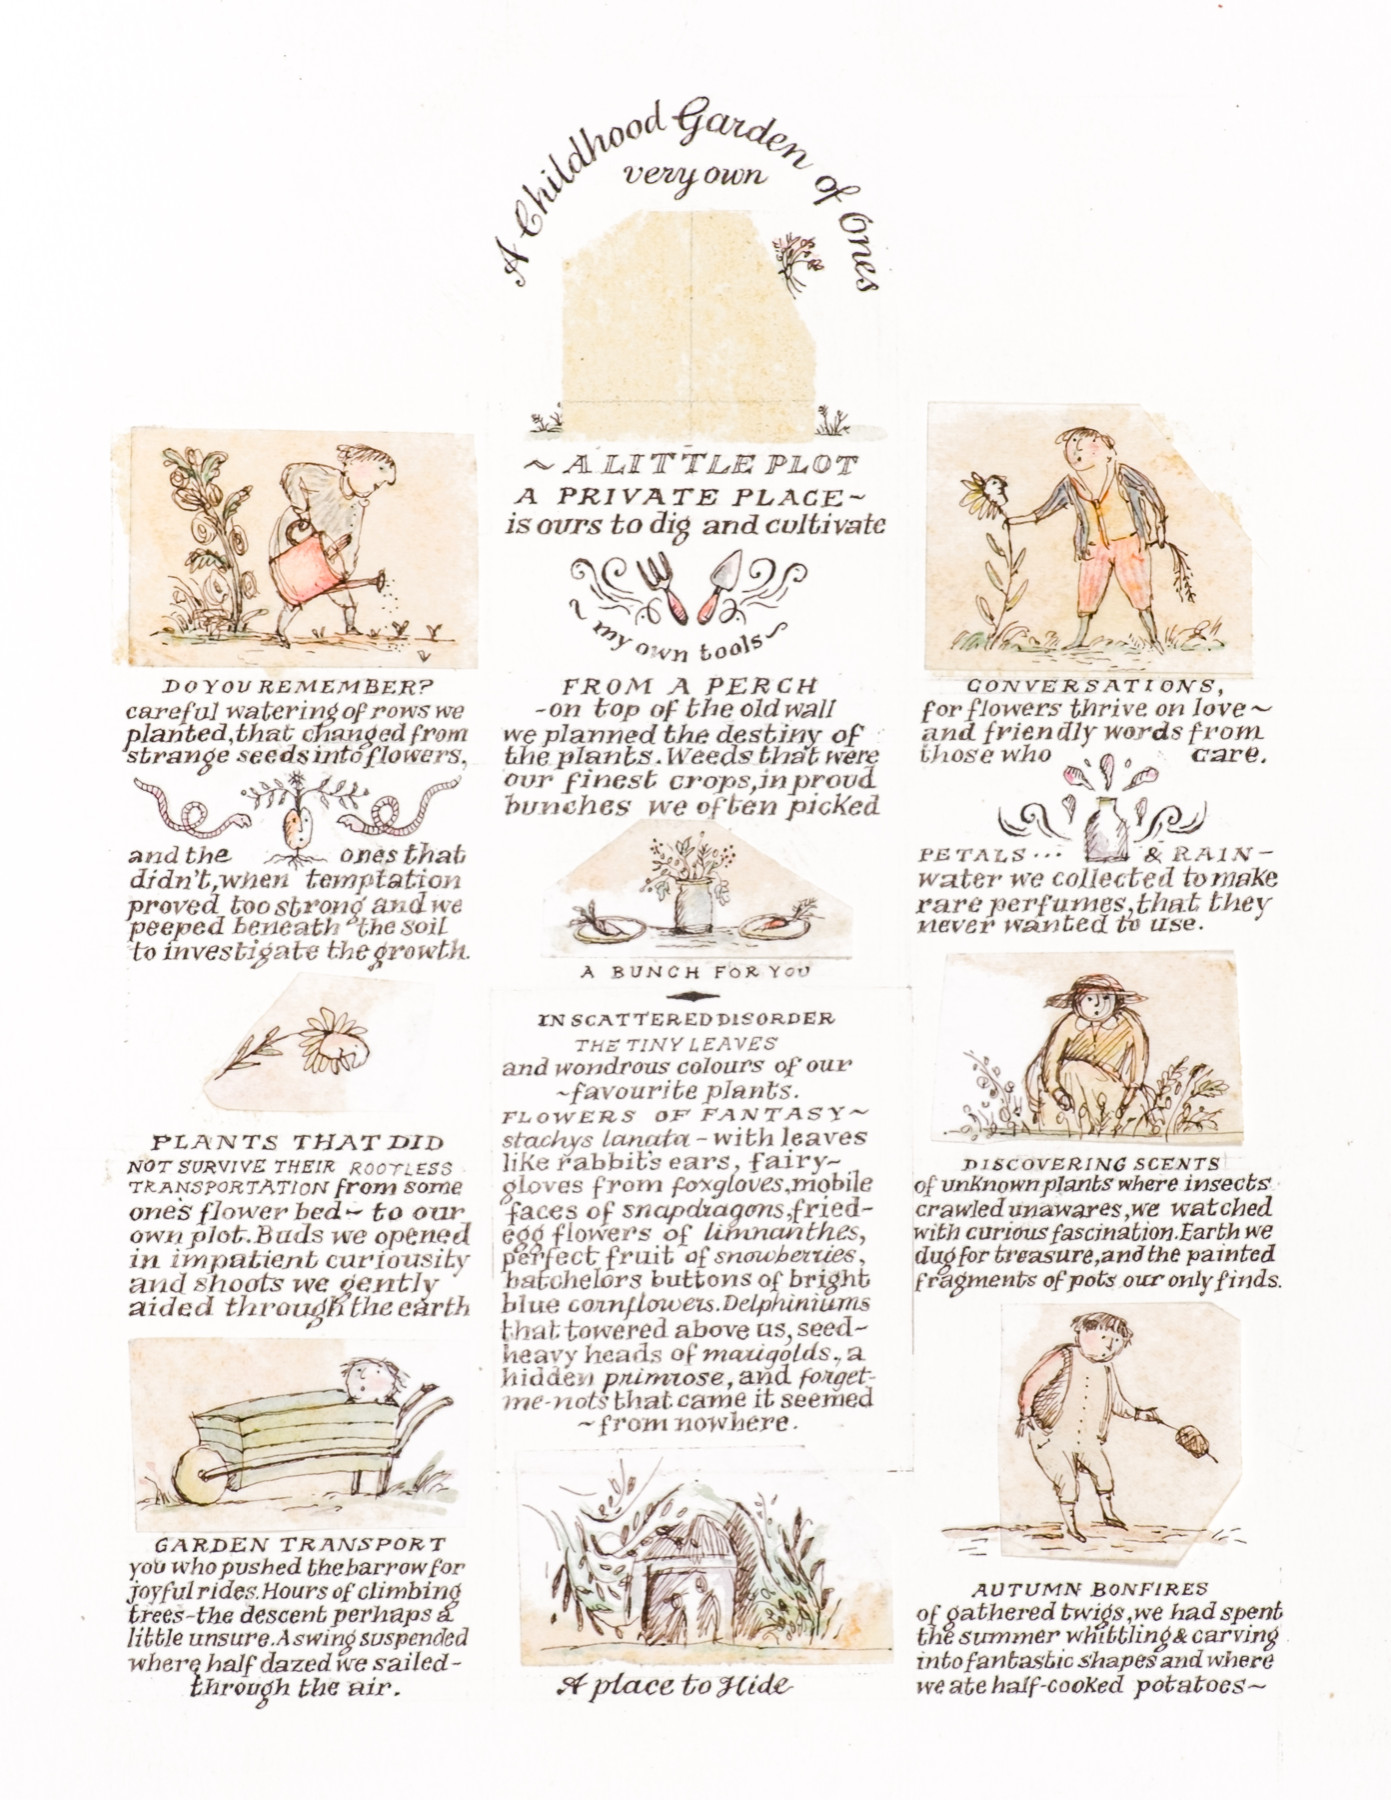 A Childhood Garden of Ones
very own
~ A LITTLE PLOT
A PRIVATE PLACE ~
is ours to dig and cultivate
~ my own tools ~
DO YOU REMEMBER?
careful watering of rows we
planted, that changed from
strange seeds into flowers,
and the ones that
didn't, when temptation
proved too strong and we
peeped beneath the soil
to investigate the growth.
PLANTS THAT DID
NOT SURVIVE THEIR ROOTLESS
TRANSPORTATION from some
one's flower bed ~ to our
own plot. Buds we opened
in impatient curiousity
and shoots we gently
aided through the earth
GARDEN TRANSPORT
you who pushed the barrow for
joyful rides. Hours of climbing
trees - the descent perhaps a
little unsure. A swing suspended
where half dazed we sailed -
through the air.
FROM A PERCH
- on top of the old wall
we planned the destiny of
the plants. Weeds that were
our finest crops, in proud
bunches we often picked
A BUNCH FOR YOU
IN SCATTERED DISORDER
THE TINY LEAVES
and wondrous colours of our
~ favourite plants.
FLOWERS OF FANTASY ~
stachys lanata - with leaves
like rabbit's ears, fairy ~
gloves from foxgloves, mobile
faces of snapdragons, fried -
egg flowers of limnanthes,
perfect fruit of snowberries,
batchelors buttons of bright
blue cornflowers. Delphiniums
that towered above us, seed -
heavy heads of marigolds, a
hidden primrose, and forget-
me-nots that came it seemed
~ from nowhere.
A place to Hide
CONVERSATIONS,
for flowers thrive on love ~
and friendly words from
those who care.
PETALS... & RAIN -
water we collected to make
rare perfumes, that they
never wanted to use.
DISCOVERING SCENTS
of unknown plants where insects
crawled unawares, we watched
with curious fascination. Earth we
dug for treasure, and the painted
fragments of pots our only finds.
AUTUMN BONFIRES
of gathered twigs, we had spent
the summer whittling & carving
into fantastic shapes and where
we ate half-cooked potatoes ~